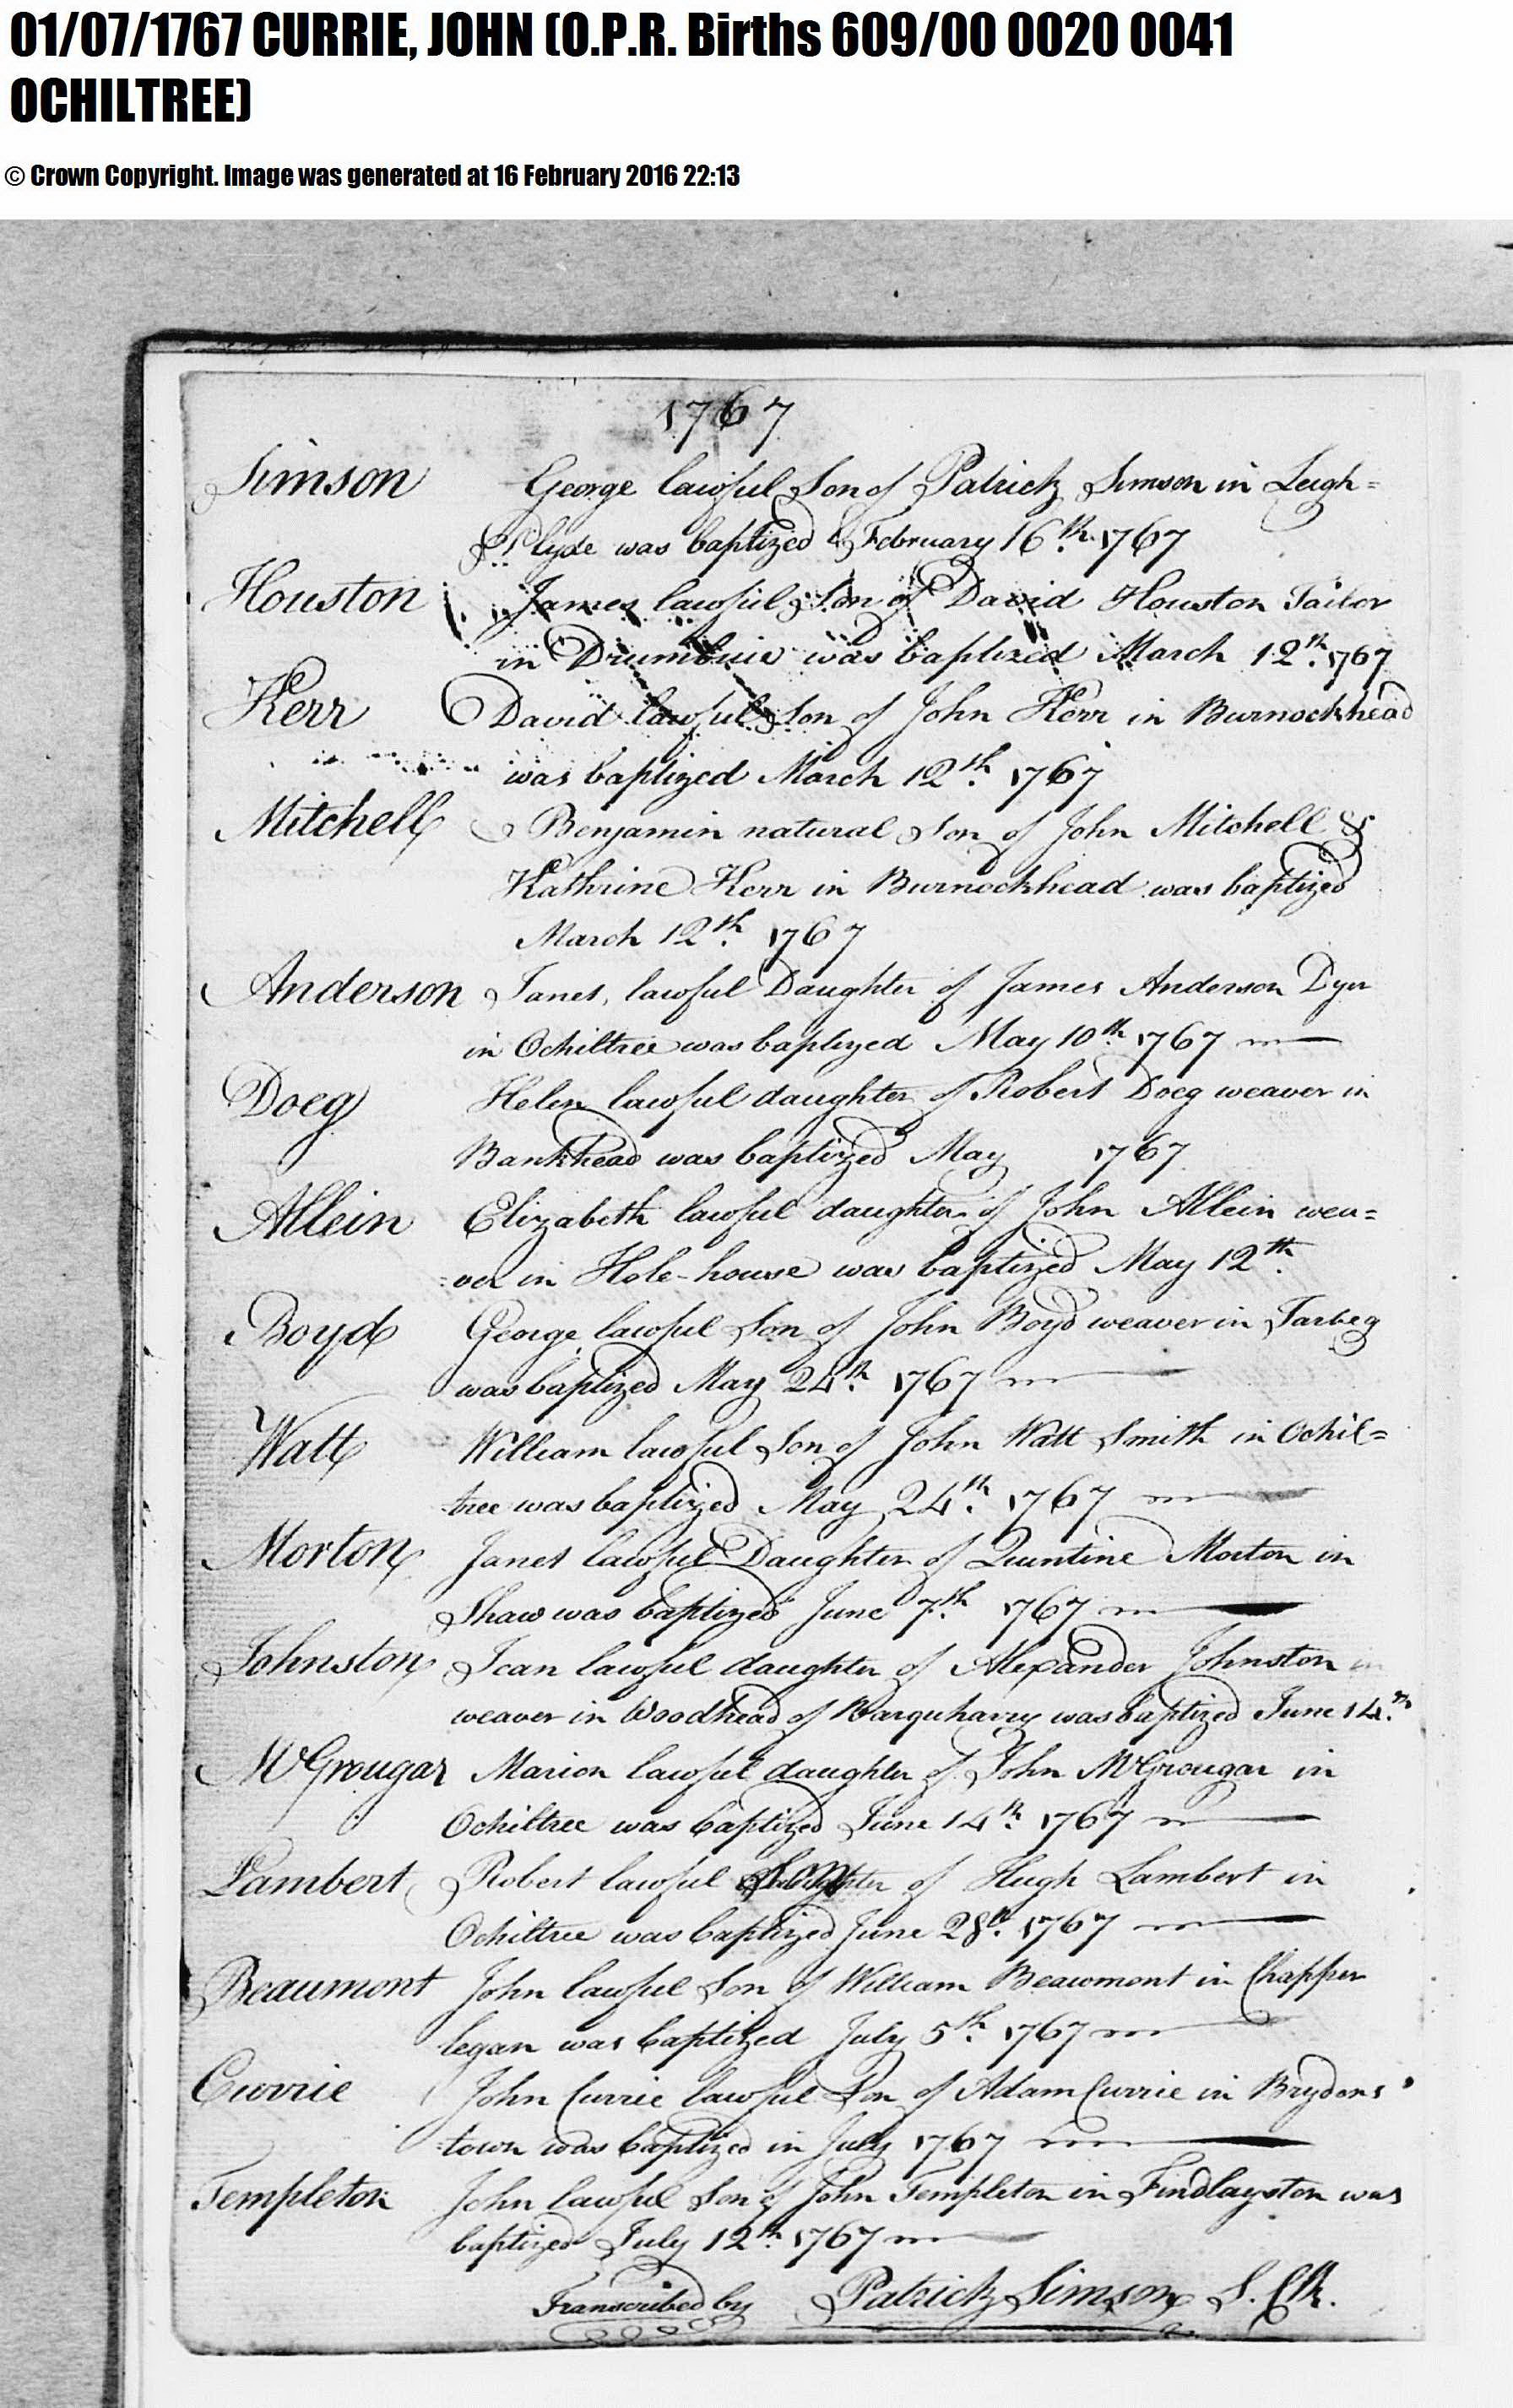 01/07/1767 CURRIE, JOHN (O.P.R. Births 609/00 0020 0041
OCHILTREE)
© Crown Copyright. Image was generated at 16 February 2016 22:13
1767
Simson George lawful Son of Patrick Simson in Leigh=
Clyde was baptized February 16th. 1767
Houston James lawful Son of David Houston Tailor
in Drumbuie was baptized March 12th. 1767
Kerr David lawful Son of John Kerr in Burnockhead
was baptized March 12th. 1767
Mitchell Benjamin natural Son of John Mitchell &
Kathrine Kerr in Burnockhead was baptized
March 12th. 1767
Anderson Janet, lawful Daughter of James Anderson Dyer
in Ochiltree was baptized May 10th. 1767
Doeg Helen lawful daughter of Robert Doeg weaver in
Bankhead was baptized May 1767
Allein Elizabeth lawful daughter of John Allein wea=
ver in Hole-house was baptized May 12th.
Boyd George lawful Son of John Boyd weaver in Tarbeg
was baptized May 24th. 1767
Watt William lawful Son of John Watt Smith in Ochil=
tree was baptized May 24th. 1767
Morton Janet lawful Daughter of Quintine Morton in
Shaw was baptized June 7th. 1767
Johnston Jean lawful daughter of Alexander Johnston in
weaver in Woodhead of Barquharry was baptized June 14th.
McGrougar Marion lawful daughter of John McGrougar in
Ochiltree was baptized June 14th. 1767
Lambert Robert lawful Son of Hugh Lambert in
Ochiltree was baptized June 28th. 1767
Beaumont John lawful Son of William Beaumont in Chapper
legan was baptized July 5th. 1767
Currie John Currie lawful Son of Adam Currie in Brydens
town was baptized in July 1767
Templeton John lawful Son of John Templeton in Findlayston was
baptized July 12th. 1767
Transcribed by Patrick Simson S. Clk.